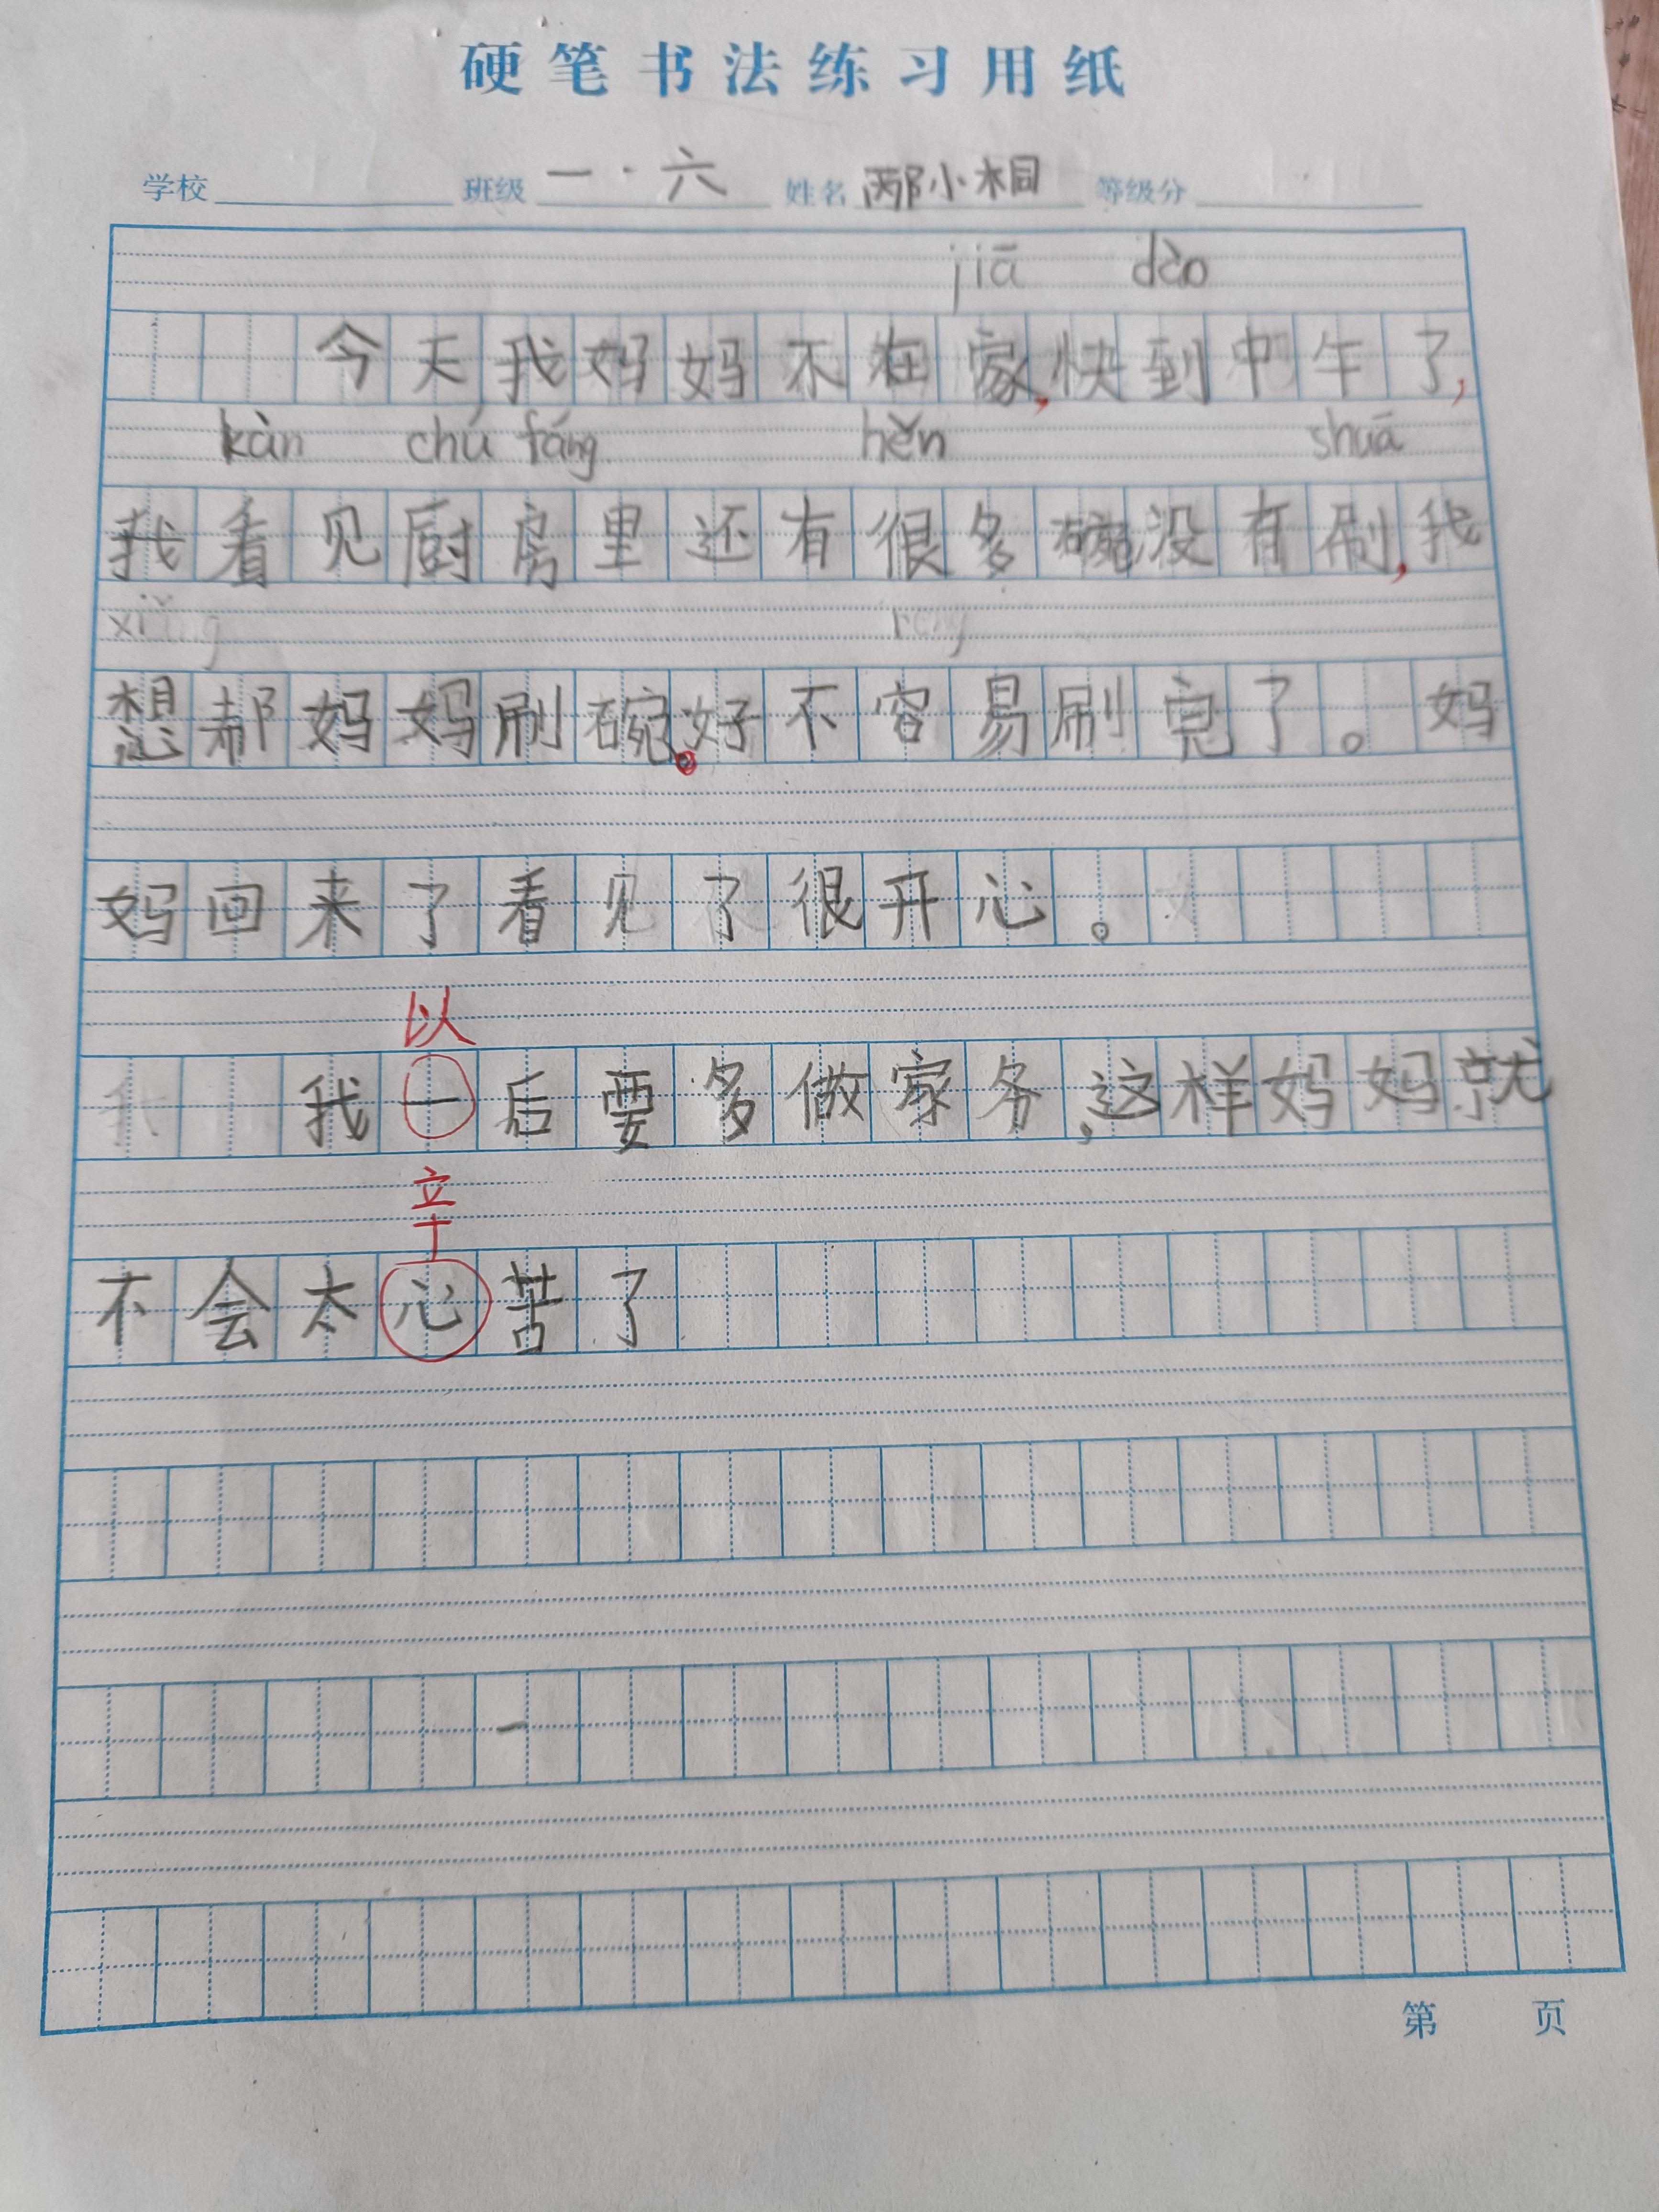 硬笔书法练习用纸
学校 班级 一·六 姓名 邴小桐 等级分
jiā dào
今天我妈妈不在家,快到中午了,
kàn chú fáng hěn shuā
我看见厨房里还有很多碗没有刷,我
xiǎng róng
想帮妈妈刷碗。好不容易刷完了。妈
妈回来了看见了很开心。
以
我一后要多做家务,这样妈妈就
辛
不会太心苦了
第 页